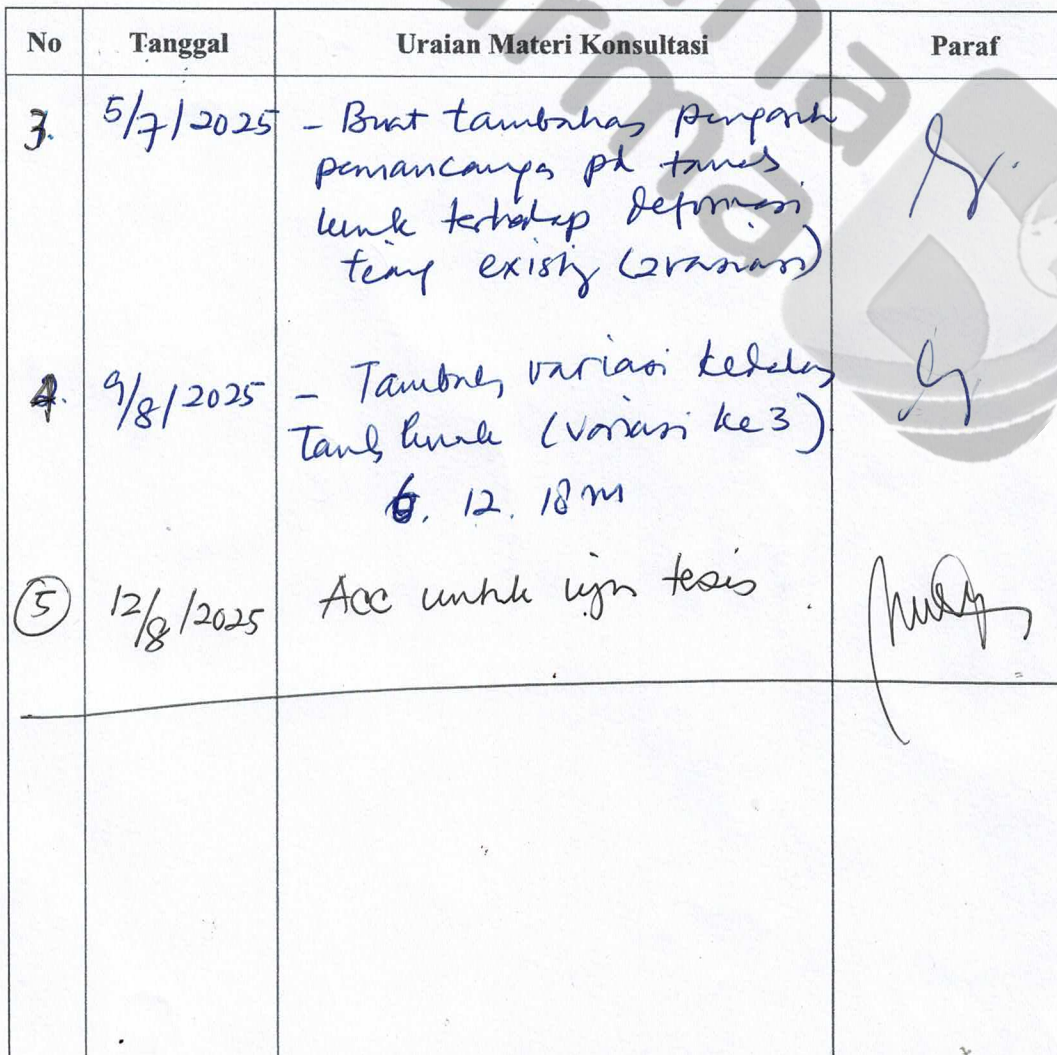 No Tanggal Uraian Materi Konsultasi Paraf
3. 5/7/2025 - Buat tambahan pengaruh
pemancangan pd tanah
lunak terhadap deformasi
tiang existing (2 variasi)
4. 9/8/2025 - Tambah variasi kedalaman
Tanah lunak (variasi ke 3)
6. 12. 18 m
5 12/8/2025 Acc untuk ujian tesis